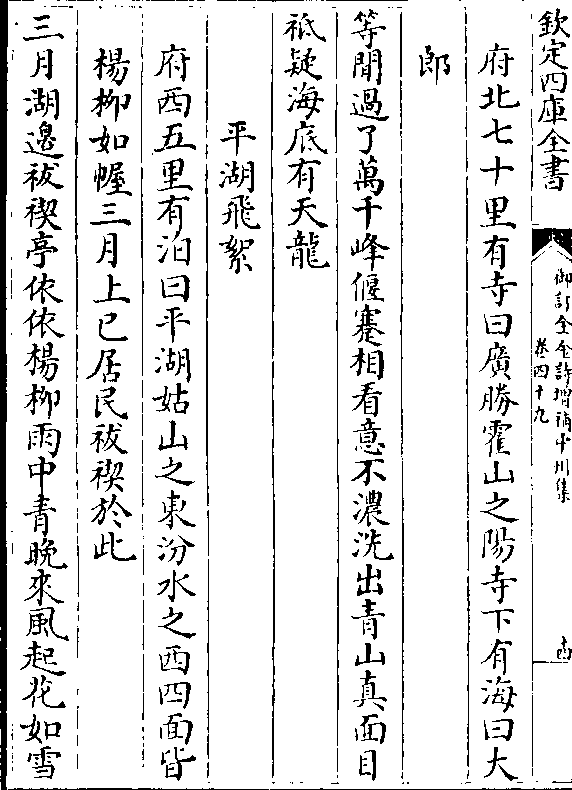 欽定四庫全書
御訂全金詩增補中州集
卷四十九
府北七十里有寺曰廣勝霍山之陽寺下有海曰大
郎
等閒過了萬千峰偃蹇相看意不濃洗出青山真面目
祗疑海底有天龍
平湖飛絮
府西五里有泊曰平湖姑山之東汾水之西四面皆
楊柳如幄三月上巳居民祓禊於此
三月湖邉祓禊亭依依楊柳雨中青晚來風起花如雪